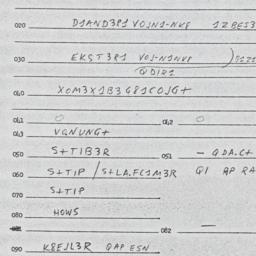 020 DJAND3R1 VOJN1-NKF 1ZBES3
030 EKST3R1 VOJ-N1NKF
QDIR1
040 XOM3X1B3G81COJG+
041 0 042 0
043 VGNUNG+
050 S+TIB3R 051 - QDA.C+
060 S+TIP /S+LA.FC1M3R QI AP RA
070 S+TIP
080 HOWS
082 —
090 K8EJL3R QAP ESN